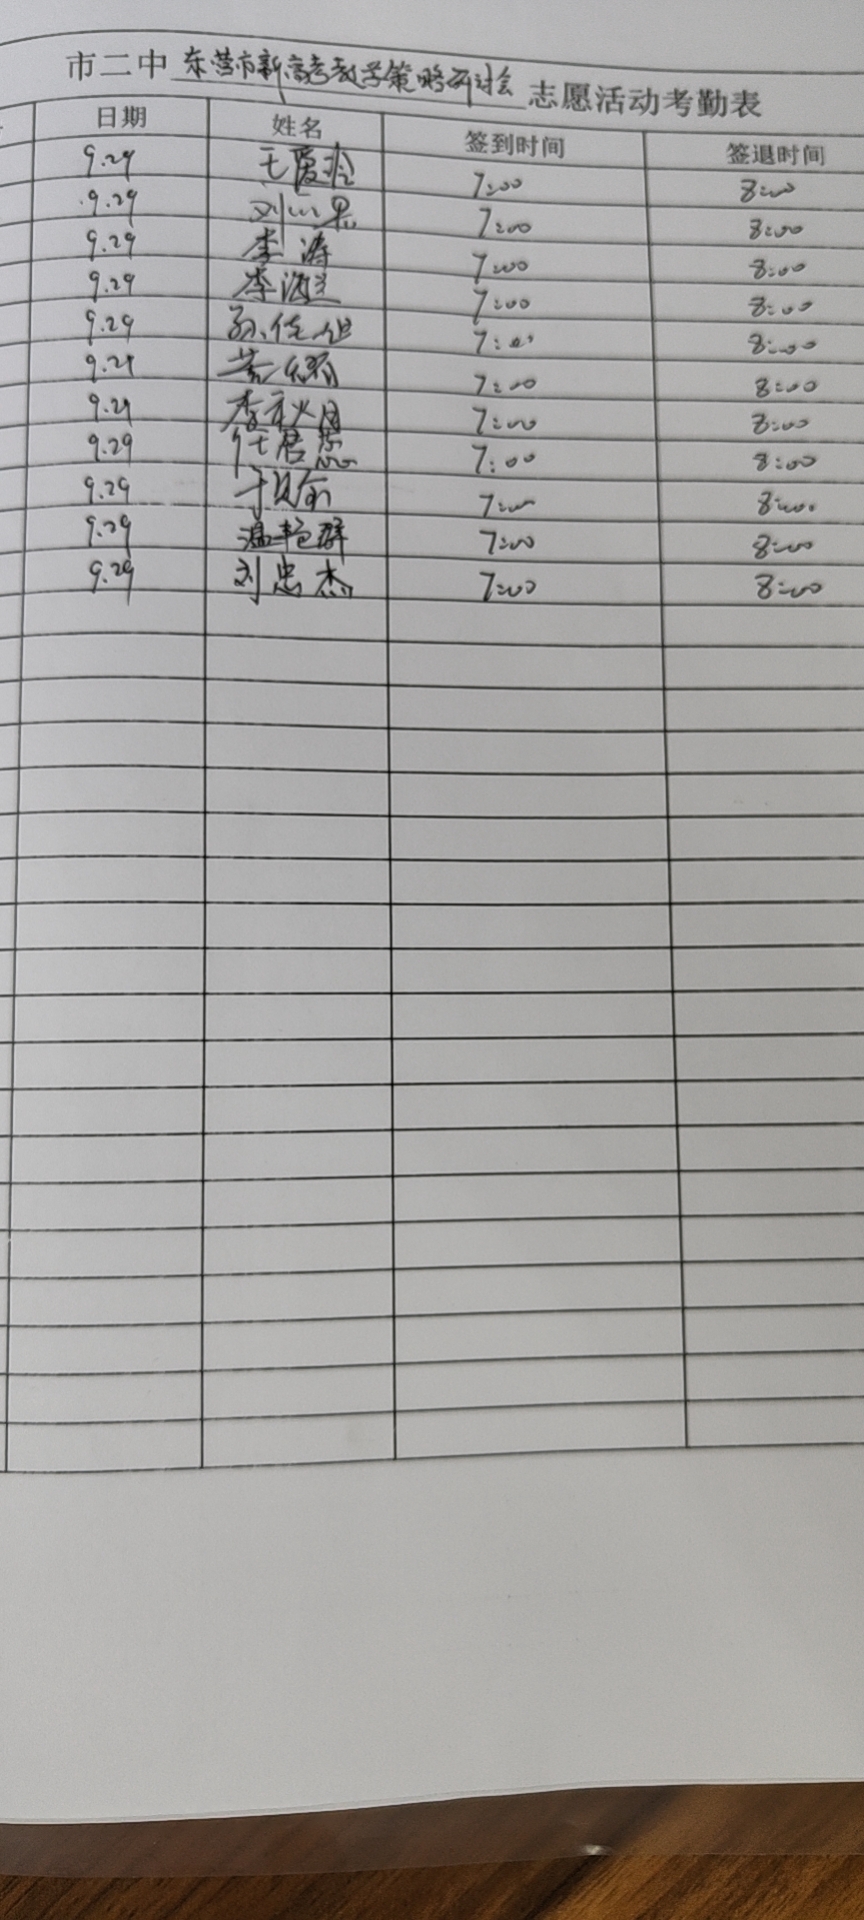 市二中 东营市新高考教学策略研讨会 志愿活动考勤表
日期 姓名 签到时间 签退时间
9.29 王爱玲 7:00 8:00
9.29 刘 7:00 8:00
9.29 李涛 7:00 8:00
9.29 李海兰 7:00 8:00
9.29 孙 7:00 8:00
9.29 7:00 8:00
9.29 李秋月 7:00 8:00
9.29 任居蕊 7:00 8:00
9.29 于 7:00 8:00
9.29 温艳群 7:00 8:00
9.29 刘忠杰 7:00 8:00